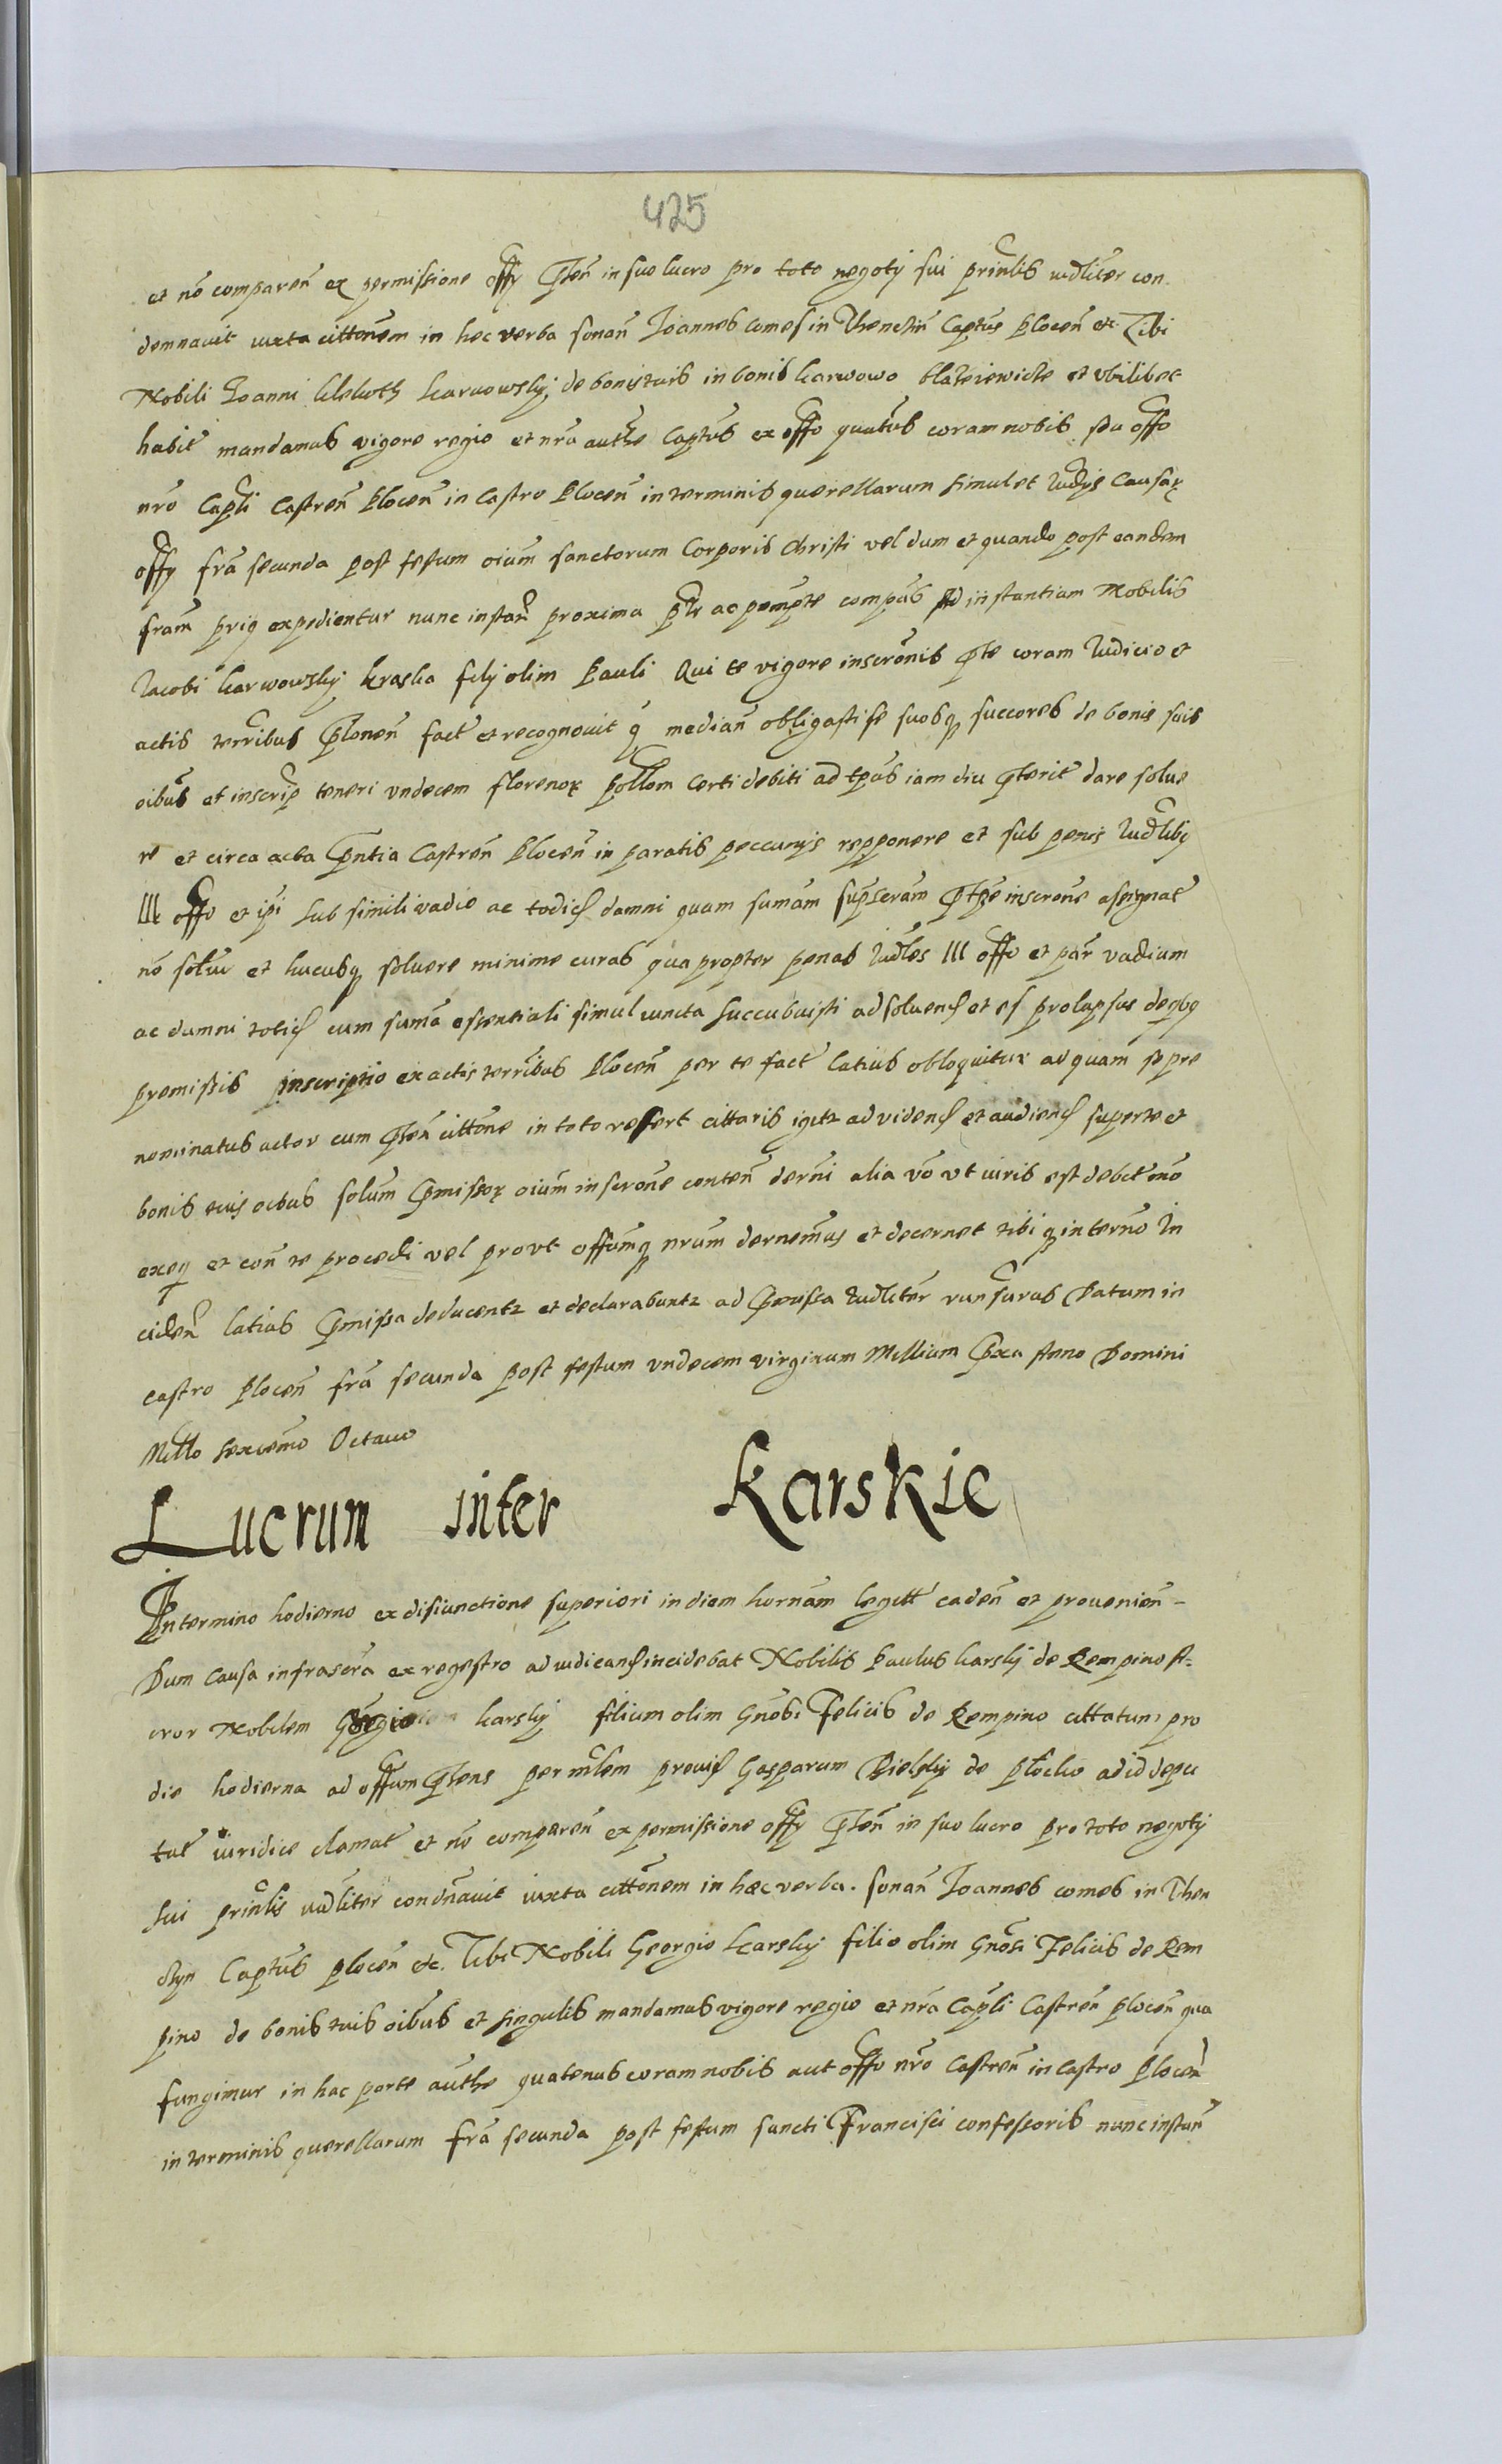 425
et nō comparen̄ ex permissione offy p̄sten̄ in suo lucro pro toto negotÿ sui prin̄lis iud̄liter con
demnauit iuxta cittōnem in hec verba sonan̄ Joannes comes in Thenczÿn Captūs Plocen̄ etc Tibi
Nobili Joanni Karwowskÿ de bonis tuis in bonis Karwowo et vbilibet
habit̄ mandamus vigore regio et nr̄a authē Captūs ex offo quatūs coram nobis seu offo
nr̄o Cap̄li Castren̄ Plocen̄ in Castro Plocen̄ in terminis querellarum simul et Iudÿs Causaꝝ
offy frā secunda post festum oium̄ sanctorum Corporis Christi vel dum et quando post eandem
fram̄ prius expedientur nunc instan̄ proxima pltr ac perempte compās ad instantiam Nobilis
Jacobi Karwowskÿ Kraska filÿ olim Pauli Qui te vigore inscrōnis p̄te coram Iudicio et
actis terribus Plonen̄ fact̄ et recognouit q̄ median̄ obligasti se suosq̨ succores de bonis suis
oibus et inscrip̄ teneri vndecem florenoꝝ pollm certi debiti ad tp̄us iam diu p̄terit̄ dare solue
re et circa acta p̄ntia Castren̄ Plocen̄ in paratis peccunÿs repponere et sub penis Iud̄libꝯ
III offo et ip̄i sub simili vadio ac todic damni quam sumām supscram̄ inscrōne assignat̄
nō soluit et hucusq̨ soluere minime curas qua propter penas Iud̄les III offo et par̄ vadium
ac damni totic cum sumā essentiali simul iuncta succubuisti ad soluend et es prolapsus de qbꝯ
premissis inscriptio ex actis terribus Plocen̄ per te fact̄ latius obloquitur ad quam se pre
nominatus actor cum p̄sten̄ cittōne in toto refert cittaris igitr ad videnđ et audienđ super te et
bonis tuis oibus solum̄ p̄missoꝝ oium̄ inscrōne conten̄ dern̄i alia vō vt iuris est debit̄ mō
exeq et con̄ te procedi vel prout offumq̨ nrum dernem̄us et decernet tibi q̨ in termō In
ciden̄ latius p̄missa deducentr et declarabuntr ad p̄missa Iud̄liter̄ runsurus Datum in
castro Plocen̄ frā secunda post festum vndecem virginum Millium p̄xa Anno Domini
Millo sexcemō Octauo
Lucrum inter Karskie
In termino hodierno ex disiunctione superiori in diem hornām legitt̄ caden̄ et prouenien̄
Dum causa infrascrā ex regestro ad iudicanđ incidebat Nobilis Paulus Karskÿ de Rempino A-
ctor Nobilem Georgium Karskÿ filium olim Gnōsi Felicis de Rempino cittatum pro
die hodierna ad offum p̄stens per mlēm prouiđ Gasparum Bielskÿ de Plocko ad id depu
tat̄ iuridice clamat̄ et nō comparen̄ ex permissione offy p̄sten̄ in suo lucro pro toto negotÿ
sui prin̄lis iud̄liter condn̄auit iuxta cittōnem in hæc verba. sonan̄ Joannes comes in Then
czyn Captūs Plocen̄ etc. Tibi Nobili Georgio Karskÿ filio olim Gnōsi Felicis de Rem
pino de bonis tuis oibus et singulis mandamus vigore regio et nr̄a Cap̄li Castren̄ Plocen̄ qua
fungimur in hac parte authē quatenus coram nobis aut offo nr̄o Castren̄ in Castro Plocen̄
in terminis querellarum frā secunda post festum sancti Francisci confessoris nunc instan̄